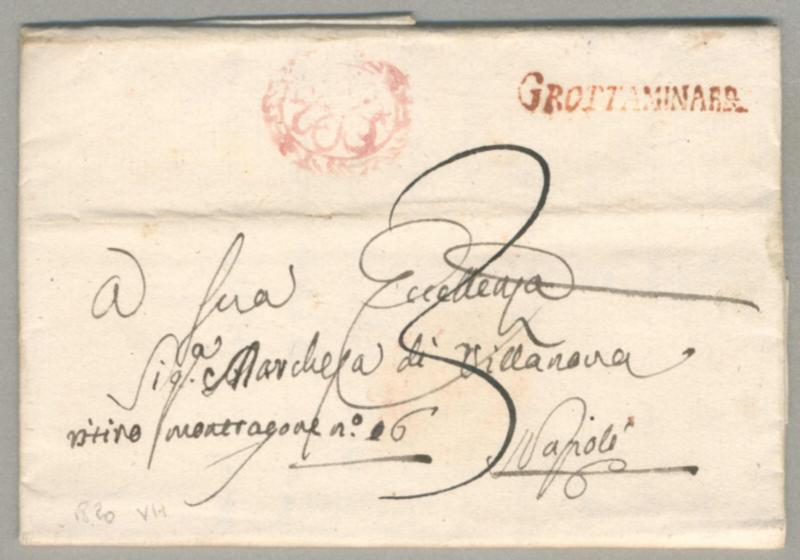 GROTTAMINARD.
3
A Sua Eccellenza
Sig.ª Marchesa di Villanova
ritiro montragone n.º 16
Napoli
1820 VH